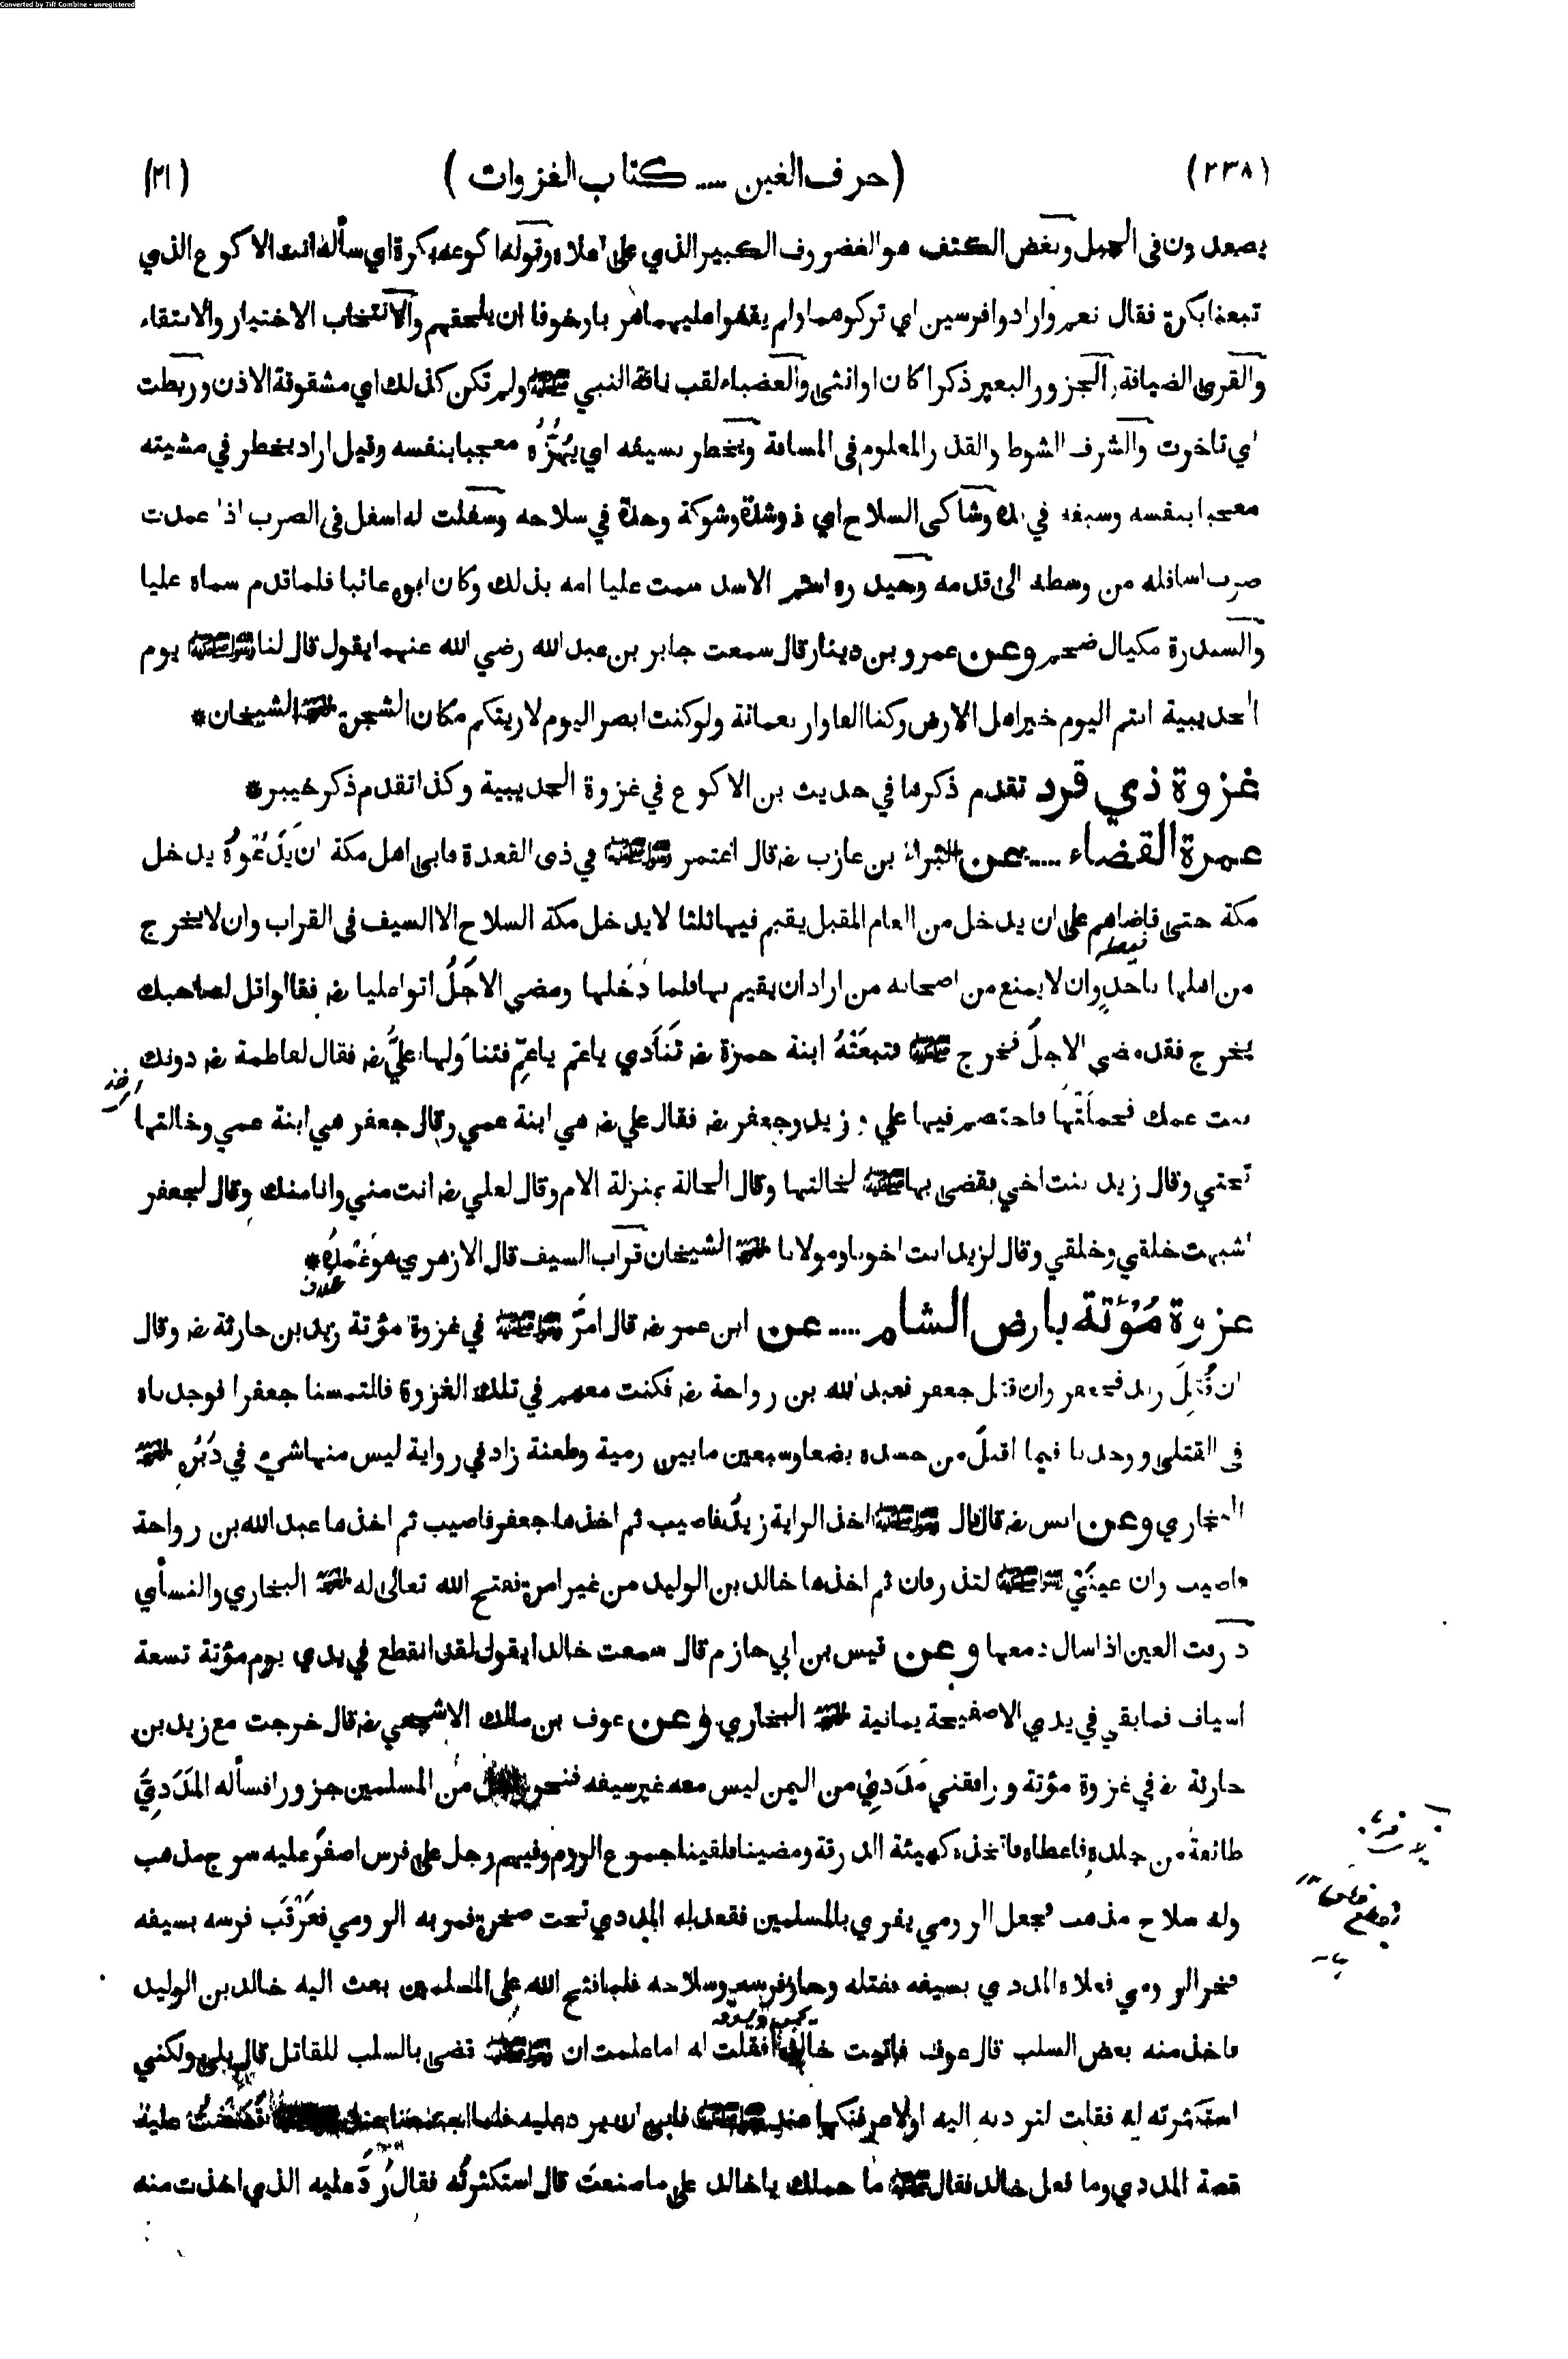 Converted by Tiff Combine - unregistered
(٢٣٨) (حرف الغين ..... كتاب الغزوات) (٢١)
يصعدون فى الجبل ونغض الكتف هو الغضروف الكبير الذي على اعلاه وقوله اكوعه بكرة اي سأله انت الاكوع الذي
تبعنا بكرة فقال نعم وارادوا فرسين اي تركوهما ولم يقفوا عليهما هربا وخوفا ان يلحقهم والانتخاب الاختيار والانتقاء
والقرى الضيافة والجزور البعير ذكرا كان او انثى والعضباء لقب ناقة النبي ﷺ ولم تكن كذلك اي مشقوقة الاذن وربطت
اي تاخرت والشرف الشوط والقدر المعلوم فى المسافة ويخطر بسيفه اي يَهُزُّه معجبا بنفسه وقيل اراد يخطر في مشيته
معجبا بنفسه وسيفه في يده وشاكى السلاح اي ذو شدة وشوكة وحدة في سلاحه وسفلت له اسفل فى الضرب اذا عمدت
ضرب اسافله من وسطه الى قدمه وحيدره اسم الاسد سمت عليا امه بذلك وكان ابوه غائبا فلما قدم سماه عليا
والسندرة مكيال ضخم وعن عمرو بن دينار قال سمعت جابر بن عبد الله رضي الله عنهما يقول قال لنا رسول الله ﷺ يوم
الحديبية انتم اليوم خير اهل الارض وكنا الفا واربعمائة ولو كنت ابصر اليوم لاريتكم مكان الشجرة اخرجه الشيخان*
غزوة ذي قرد تقدم ذكرها في حديث بن الاكوع في غزوة الحديبية وكذا تقدم ذكر خيبر*
عمرة القضاء ..... عن البراء بن عازب رض قال اعتمر رسول الله ﷺ في ذى القعدة فابى اهل مكة ان يَدَعُوهُ يدخل
مكة حتى قاضاهم على ان يدخل من العام المقبل يقيم فيها ثلثا لا يدخل مكة السلاح الا السيف فى القراب وان لا يخرج
من اهلها باحدٍ وان لا يمنع من اصحابه من اراد ان يقيم بها فلما دَخلها ومضى الاجَلُ اتوا عليا رض فقالوا قل لصاحبك
يخرج فقد مضى الاجلُ فخرج ﷺ فتبعَتْهُ ابنة حمزة رض تُنَادي ياعم ياعمِّ فتناوَلها عليٌّ رض فقال لفاطمة رض دونك
بنت عمك فحملَتْها فاختصم فيها علي وزيد وجعفر رض فقال علي رض هي ابنة عمي وقال جعفر هي ابنة عمي وخالتها
تحتي وقال زيد بنت اخي فقضى بها ﷺ لخالتها وقال الخالة بمنزلة الام وقال لعلي رض انت مني وانا منك وقال لجعفر
اشبهت خلقي وخلقي وقال لزيد انت اخونا ومولانا اخرجه الشيخان قراب السيف قال الازهري هو غمده*
غزوة مُؤتة بارض الشام ..... عن ابن عمر رض قال امَّر رسول الله ﷺ في غزوة مؤتة زيد بن حارثة رض وقال
ان قُتِلَ زيد فجعفر وان قتل جعفر فعبد الله بن رواحة رض فكنت معهم في تلك الغزوة فالتمسنا جعفرا فوجدناه
فى القتلى ووجدنا فيما اقبل من جسده بضعا وسبعين ما بين رمية وطعنة زاد في رواية ليس منها شيء في دُبُرِه اخرجه
البخاري وعن انس رض قال قال رسول الله ﷺ اخذ الراية زيدٌ فاصيب ثم اخذها جعفر فاصيب ثم اخذها عبد الله بن رواحة
فاصيب وان عينَيْ رسول الله ﷺ لتذرفان ثم اخذها خالد بن الوليد من غير امرة ففتح الله تعالى له اخرجه البخاري والنسأي
ذرفت العين اذا سال دمعها وعن قيس بن ابي حازم قال سمعت خالدا يقول لقد انقطع في يدي يوم مؤتة تسعة
اسياف فما بقي في يدي الا صفيحة يمانية اخرجه البخاري وعن عوف بن مالك الاشجعي رض قال خرجت مع زيد بن
حارثة رض في غزوة مؤتة ورافقني مَدَدِيّ من اليمن ليس معه غير سيفه فنحر رجل من المسلمين جزورا فسأله المَدَدِيّ
طائفة من جلده فاعطاه فاتخذه كهيئة الدرقة ومضينا فلقينا جموع الروم وفيهم رجل على فرس اصفر عليه سرج مذهب
وله سلاح مذهب فجعل الرومي يفري بالمسلمين فقعد له المددي تحت صخرة فمر به الرومي فعَرْقَب فرسه بسيفه
فخر الرومي فعلاه المددي بسيفه فقتله وحاز فرسه وسلاحه فلما فتح الله على المسلمين بعث اليه خالد بن الوليد
فاخذ منه بعض السلب قال عوف فاتيت خالدا فقلت له اما علمت ان رسول الله ﷺ قضى بالسلب للقاتل قال بلى ولكني
استكثرته له فقلت لتردنه اليه او لاعرفنكها عند رسول الله ﷺ فابى ان يرد عليه فلما اجتمعنا عند فقصصت عليه
قصة المددي وما فعل خالد فقال ﷺ ما حملك ياخالد على ما صنعت قال استكثرتُه فقال رُدَّ عليه الذي اخذت منه